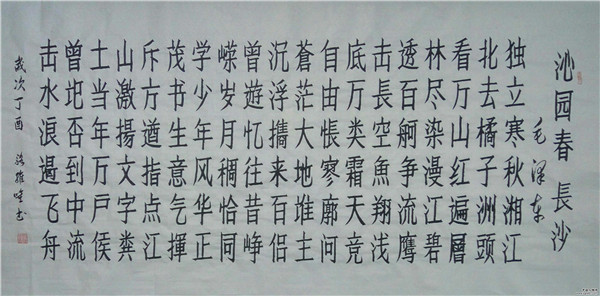 沁园春 長沙
毛泽东
独立寒秋湘江
北去橘子洲頭
看万山红遍層
林尽染漫江碧
透百舸争流鹰
击長空魚翔浅
底万类霜天竞
自由悵寥廓问
蒼茫大地堆主
沉浮擕来百侣
曾遊忆往昔峥
嵘岁月稠恰同
学少年风华正
茂书生意气揮
斥方遒指点江
山激揚文字粪
土当年万户侯
曾记否到中流
击水浪遏飞舟
歲次丁酉 书